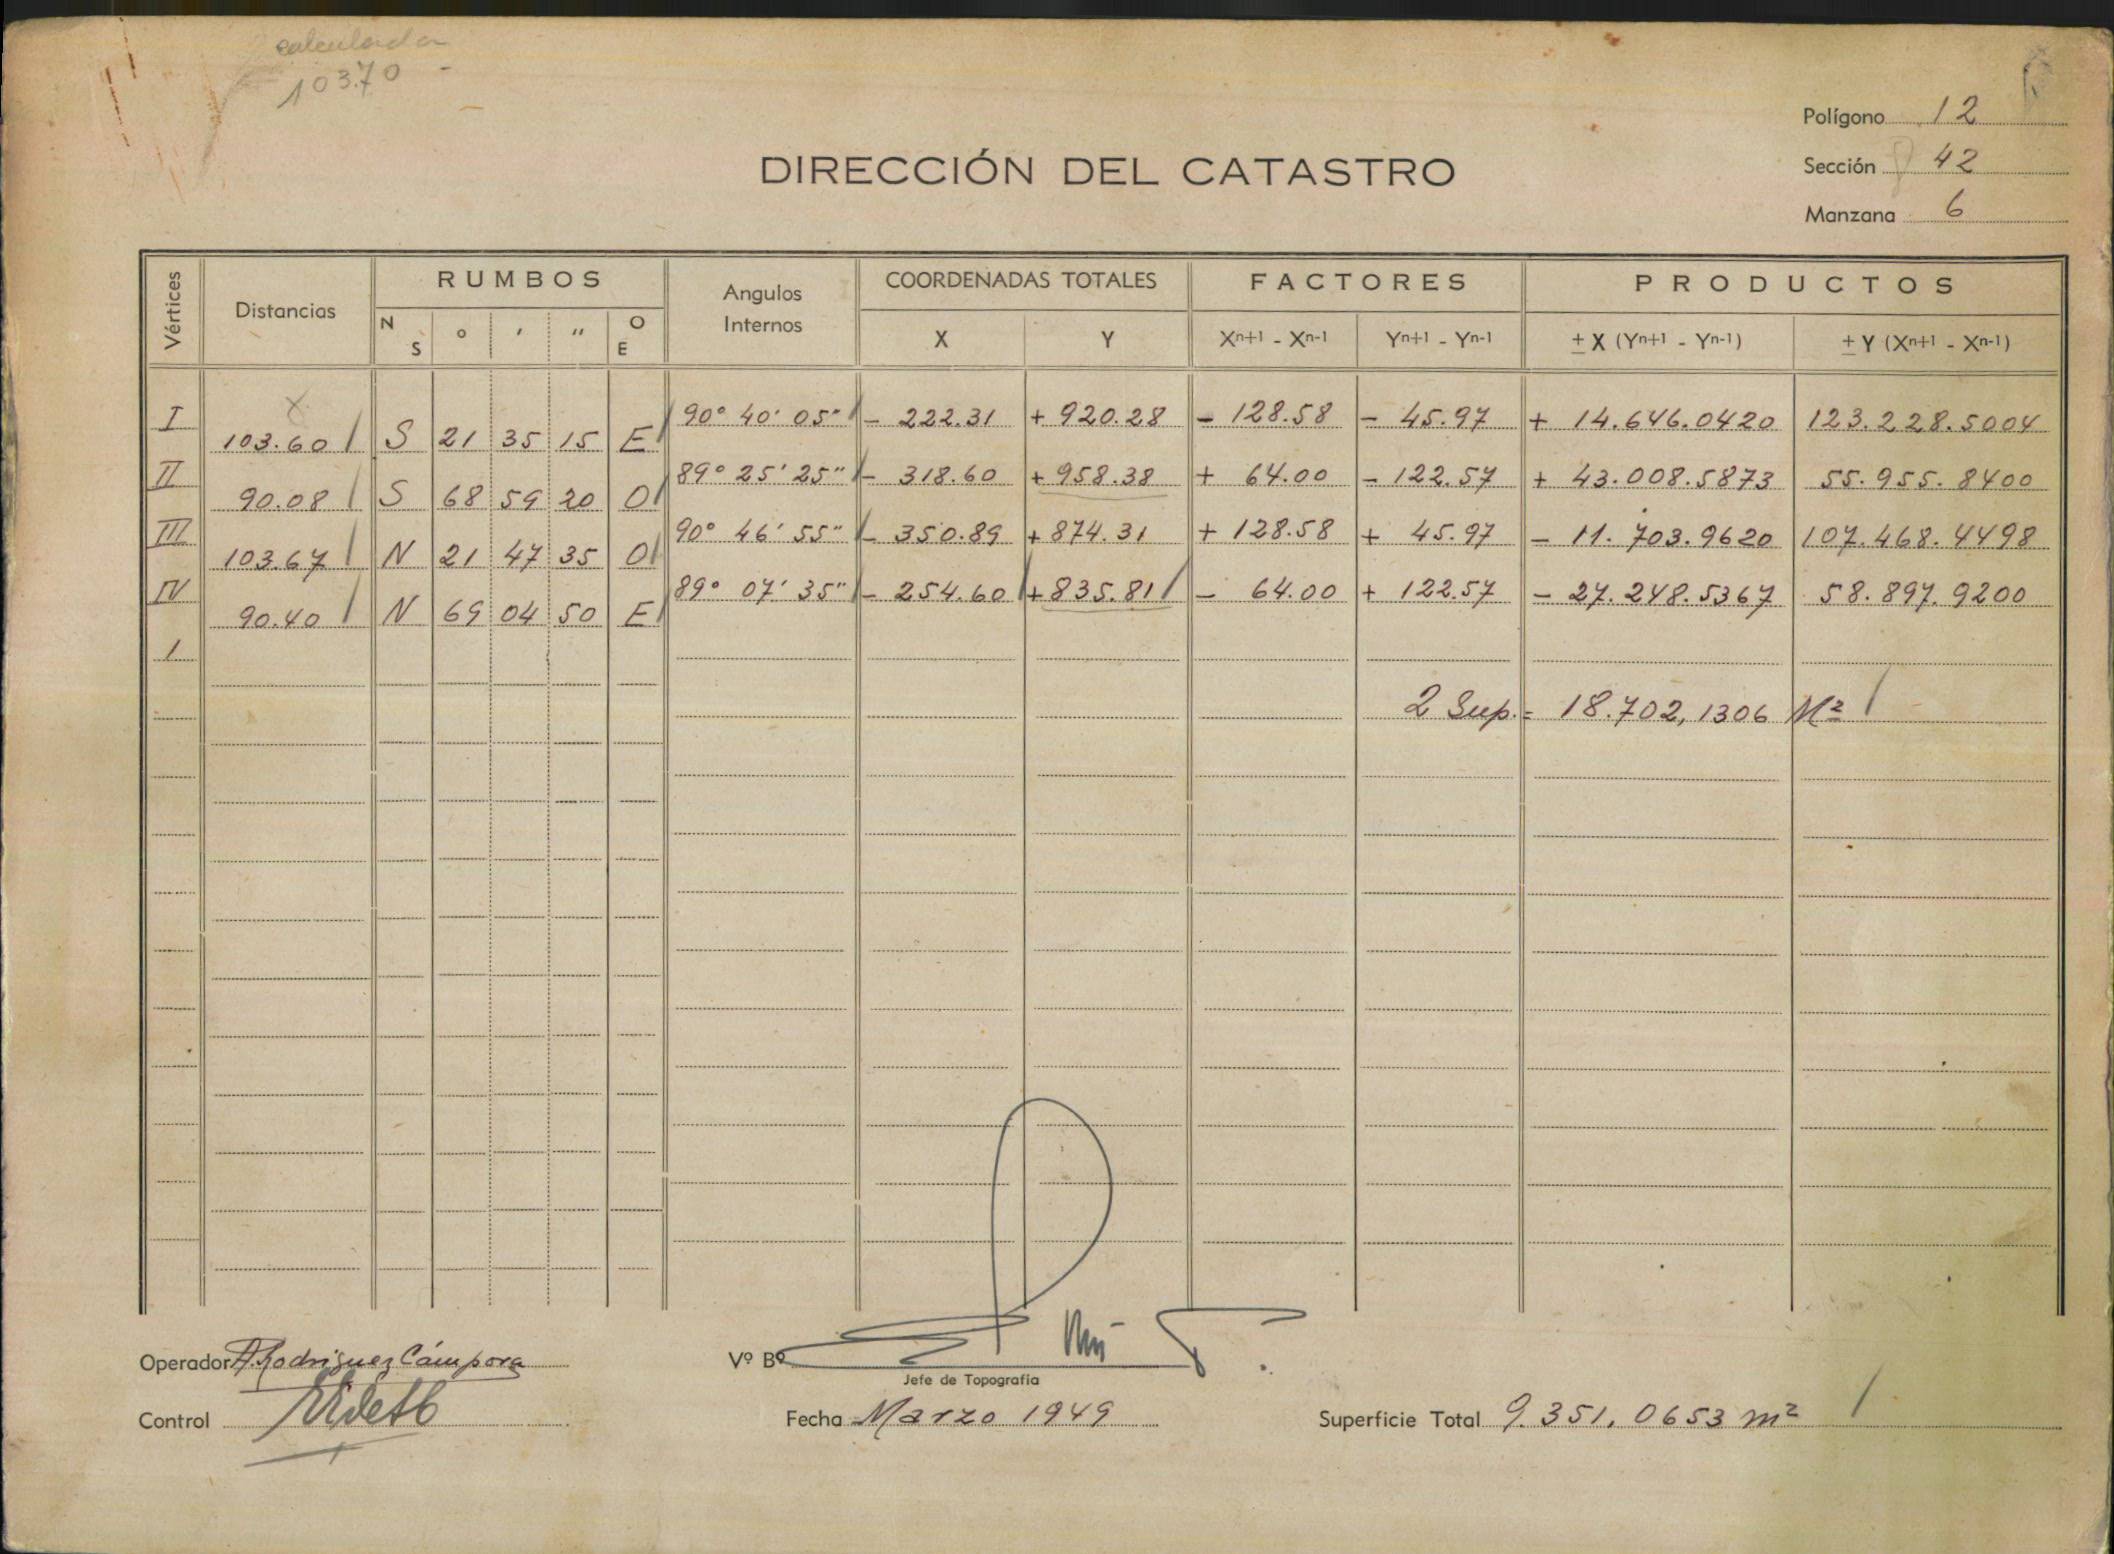 calculada
103.70 -
Polígono 12
Sección 42
Manzana 6
DIRECCIÓN DEL CATASTRO
Vértices Distancias RUMBOS Angulos Internos COORDENADAS TOTALES FACTORES PRODUCTOS
N S ° ′ ″ O E X Y Xn+1 - Xn-1 Yn+1 - Yn-1 ± X (Yn+1 - Yn-1) ± Y (Xn+1 - Xn-1)
I 90° 40' 05" - 222.31 + 920.28 - 128.58 - 45.97 + 14.646.0420 123.228.5004
103.60 S 21 35 15 E
II 89° 25' 25" - 318.60 + 958.38 + 64.00 - 122.57 + 43.008.5873 55.955.8400
90.08 S 68 59 20 O
III 90° 46' 55" - 350.89 + 874.31 + 128.58 + 45.97 - 11.703.9620 107.468.4498
103.67 N 21 47 35 O
IV 89° 07' 35" - 254.60 + 835.81 - 64.00 + 122.57 - 27.248.5367 58.897.9200
90.40 N 69 04 50 E
I
2 Sup. = 18.702,1306 M²
Operador A. Rodriguez Cámpora
Vº Bº
Jefe de Topografía
Control
Fecha Marzo 1949
Superficie Total 9.351,0653 m²